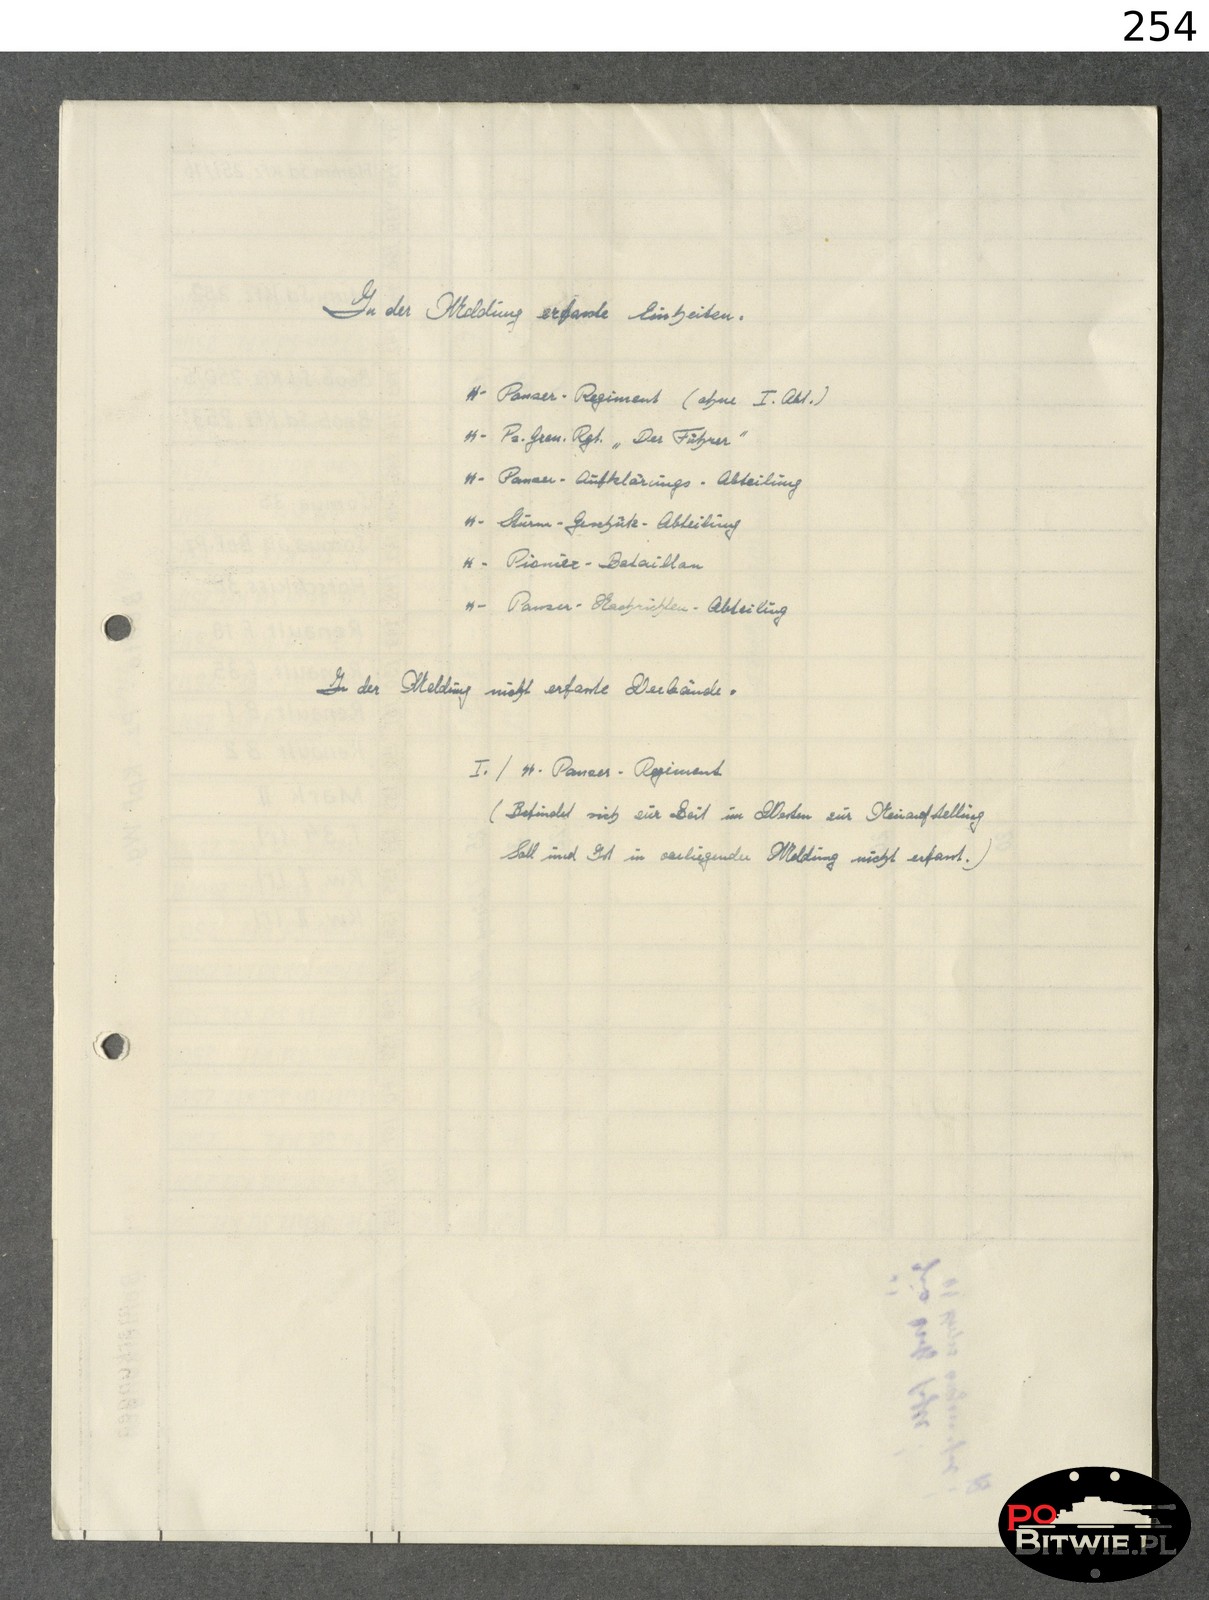 254
In der Meldung erfaste Einheiten.
SS- Panzer- Regiment (ohne I. Abt.)
SS- Pz. Gren. Rgt. „Der Führer"
SS- Panzer- Aufklärungs- Abteilung
SS- Sturm- Geschütz- Abteilung
SS- Pionier- Bataillon
SS- Panzer- Nachrichten- Abteilung
In der Meldung nicht erfaste Verbände.
I. / SS- Panzer- Regiment
( Befindet sich zur Zeit im Westen zur Neuaufstellung
Soll und Ist in vorliegender Meldung nicht erfast.)
PO
BITWIE.PL